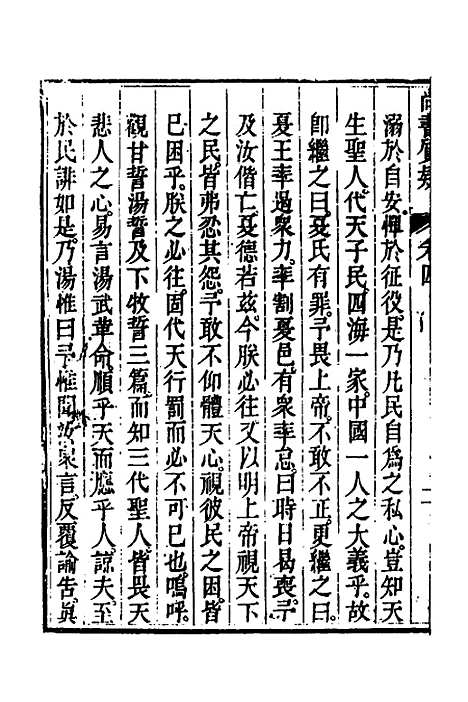 尚書質疑 卷四
溺於自安憚於征役是乃凡民自為之私心豈知天
生聖人代天子民四海一家中國一人之大義乎故
即繼之曰夏氏有罪予畏上帝不敢不正更繼之曰
夏王率遏眾力率割夏邑有眾率怠曰時日曷喪予
及汝偕亡夏德若茲今朕必往又以明上帝視天下
之民皆弗忍其怨予敢不仰體天心視彼民之困皆
已困乎朕之必往固代天行罰而必不可已也嗚呼
觀甘誓湯誓及下牧誓三篇而知三代聖人皆畏天
悲人之心易言湯武革命順乎天而應乎人諒夫至
於民誹如是乃湯惟曰予惟聞汝眾言反覆諭告真